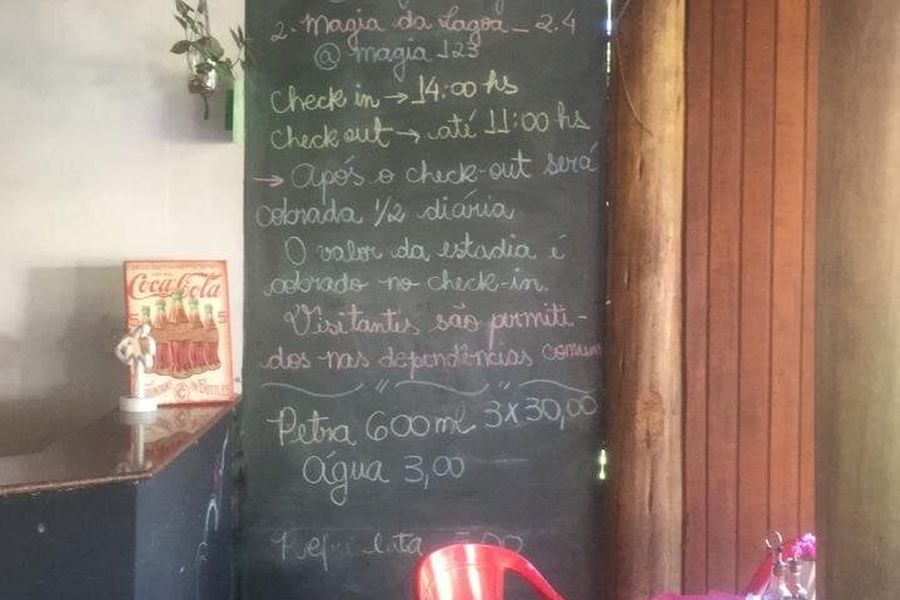 2. Magia da Lagoa _ 2.4
@ magia 123
Check in → 14:00 hs
Check out → até 11:00 hs
→ Após o check-out será
cobrada 1/2 diária
O valor da estadia é
cobrado no check-in.
Visitantes são permiti-
dos nas dependências comuns
Petra 600 ml 3x30,00
Água 3,00
lata
Coca-Cola
5 5
IN BOTTLES